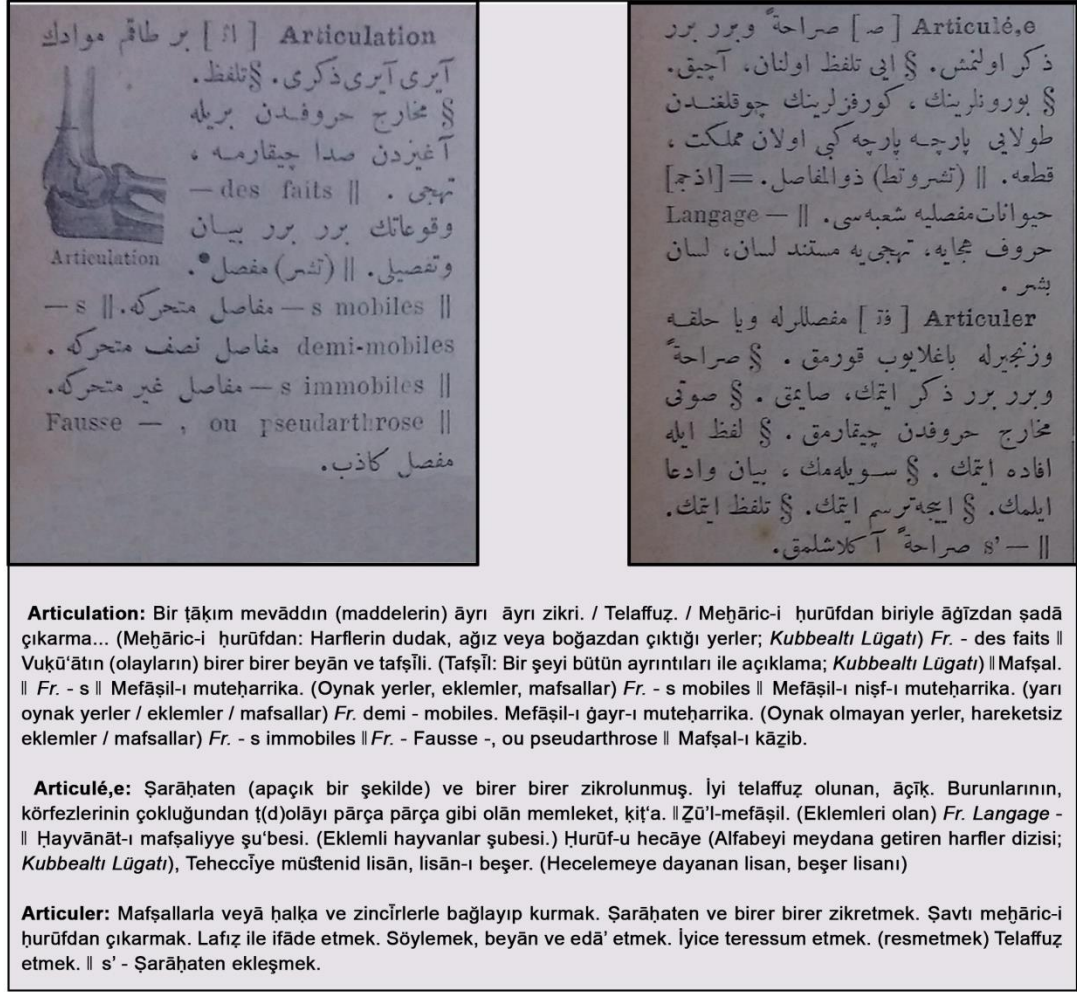 Articulation [ اژ ] بر طاقم موادك
آیری آیری ذکری. § تلفظ.
§ مخارج حروفدن بریله
آغیزدن صدا چیقارمه ،
تهجی . || des faits —
وقوعاتك برر برر بیان
وتفصیلی. || (تشر) مفصل*.
|| s mobiles — مفاصل متحرکه. || s —
demi-mobiles مفاصل نصف متحرکه .
|| s immobiles — مفاصل غیر متحرکه.
|| Fausse — , ou pseudarthrose
مفصل کاذب.
Articulation
Articulé,e [ صـ ] صراحةً وبرر برر
ذکر اولنمش. § ایی تلفظ اولنان، آچیق.
§ بورونلرینك ، کورفزلرینك چوقلغندن
طولایی پارچه پارچه کبی اولان مملکت ،
قطعه. || (تشروتط) ذوالمفاصل. = [اذجم]
حیوانات مفصلیه شعبه سی. || — Langage
حروف هجایه، تهجی یه مستند لسان، لسان
بشر .
Articuler [ فژ ] مفصللرله ویا حلقه
وزنجیرله باغلایوب قورمق . § صراحةً
وبرر برر ذکر ایتمك، صایمق . § صوتی
مخارج حروفدن چیقارمق . § لفظ ایله
افاده ایتمك . § سویله مك ، بیان وادعا
ایلمك. § اییجه ترسم ایتمك. § تلفظ ایتمك.
|| — s’ صراحةً آکلاشلمق.
Articulation: Bir ṭāḳım mevāddın (maddelerin) āyrı āyrı zikri. / Telaffuẓ. / Meḫāric-i ḥurūfdan biriyle āġīzdan ṣadā
çıkarma... (Meḫāric-i ḥurūfdan: Harflerin dudak, ağız veya boğazdan çıktığı yerler; Kubbealtı Lügatı) Fr. - des faits ||
Vuḳū‘ātın (olayların) birer birer beyān ve tafṣīli. (Tafṣīl: Bir şeyi bütün ayrıntıları ile açıklama; Kubbealtı Lügatı) || Mafṣal.
|| Fr. - s || Mefāṣil-ı muteḥarrika. (Oynak yerler, eklemler, mafsallar) Fr. - s mobiles || Mefāṣil-ı niṣf-ı muteḥarrika. (yarı
oynak yerler / eklemler / mafsallar) Fr. demi - mobiles. Mefāṣil-ı ġayr-ı muteḥarrika. (Oynak olmayan yerler, hareketsiz
eklemler / mafsallar) Fr. - s immobiles || Fr. - Fausse -, ou pseudarthrose || Mafṣal-ı kāẕib.
Articulé,e: Ṣarāḥaten (apaçık bir şekilde) ve birer birer zikrolunmuş. İyi telaffuẓ olunan, āçīḳ. Burunlarının,
körfezlerinin çokluğundan ṭ(d)olāyı pārça pārça gibi olān memleket, ḳiṭ‘a. || Ẕū’l-mefāṣil. (Eklemleri olan) Fr. Langage -
|| Ḥayvānāt-ı mafṣaliyye şu‘besi. (Eklemli hayvanlar şubesi.) Ḥurūf-u hecāye (Alfabeyi meydana getiren harfler dizisi;
Kubbealtı Lügatı), Teheccīye müstenid lisān, lisān-ı beşer. (Hecelemeye dayanan lisan, beşer lisanı)
Articuler: Mafṣallarla veyā ḥalḳa ve zincīrlerle bağlayıp kurmak. Ṣarāḥaten ve birer birer zikretmek. Ṣavtı meḫāric-i
ḥurūfdan çıkarmak. Lafıẓ ile ifāde etmek. Söylemek, beyān ve edā’ etmek. İyice teressum etmek. (resmetmek) Telaffuẓ
etmek. || s’ - Ṣarāḥaten ekleşmek.